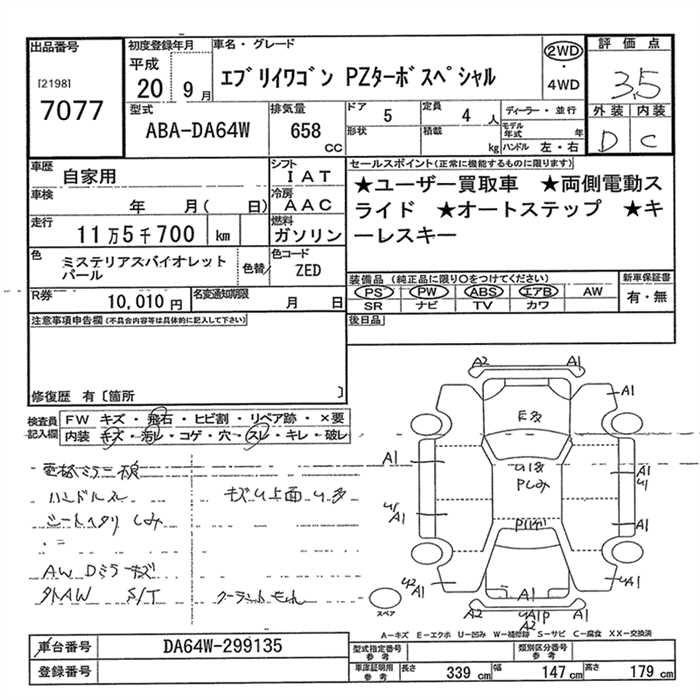 出品番号
[2198]
7077
初度登録年月
平成
20 9月
車名・グレード
エブリイワゴン PZターボスペシャル
2WD
・
4WD
評価点
3.5
外装 内装
D C
型式
ABA-DA64W
排気量
658
CC
ドア 5
形状
定員 4 人
積載 kg
ディーラー・並行
モデル年式 年
ハンドル 左・右
車歴 自家用
車検 年 月( 日)
走行 11万5千700 km
色 ミステリアスバイオレットパール
色替
シフト IAT
冷房 AAC
燃料 ガソリン
色コード ZED
セールスポイント(正常に機能するものに限ります)
★ユーザー買取車 ★両側電動ス
ライド ★オートステップ ★キ
ーレスキー
R券 10,010円
名変通知期限 月 日
装備品(純正品に限り〇をつけてください)
PS PW ABS エアB AW
SR ナビ TV カワ
新車保証書
有・無
後日品
注意事項申告欄(不具合内容等は具体的に記入して下さい)
修復歴 有〔箇所 〕
検査員記入欄
FW キズ・飛石・ヒビ割・リペア跡・×要
内装 キズ・汚レ・コゲ・穴・スレ・キレ・破レ
ハンドルスレ
シートヘタリ しみ
AW Dミラーキズ
外AW S/T
A2 A1
A1
E多
U1多
Pしみ
A1
U1
A1
A1
U1
A1
P1
U2
A1
A1
UA1
A2 UA1P A1
A2
スペア
A-キズ E-エクボ U-凹み W-補修跡 S-サビ C-腐食 XX-交換済
車台番号 DA64W-299135
登録番号
型式指定番号
参考
類別区分番号
参考
車庫証明用
参考
長さ 339 cm 幅 147 cm 高さ 179 cm